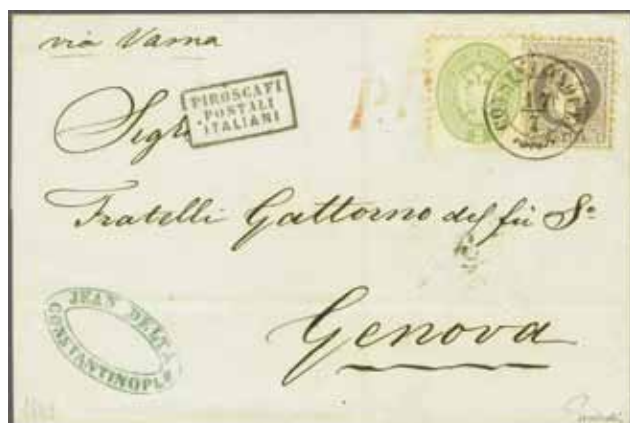 via Varna
PIROSCAFI
POSTALI
ITALIANI
Sigri
Fratelli Gattorno del fù
Genova
JEAN DELTA
CONSTANTINOPLE
17
7